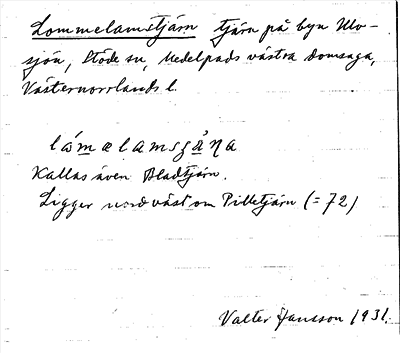 Lommelamstjärn tjärn på byn Ulv-
sjön, Stöde sn, Medelpads västra domsaga,
Västernorrlands l.
lámelamsʒǎŋa
Kallas även Bladtjärn.
Ligger nordväst om Pilletjärn (= 72)
Valter Jansson 1931.